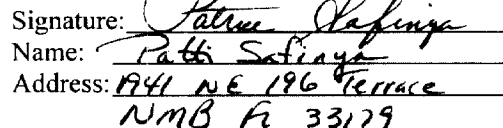 Signature: Patrice Safinya
Name: Patti Safinya
Address: 1941 NE 196 Terrace
NMB Fl 33179